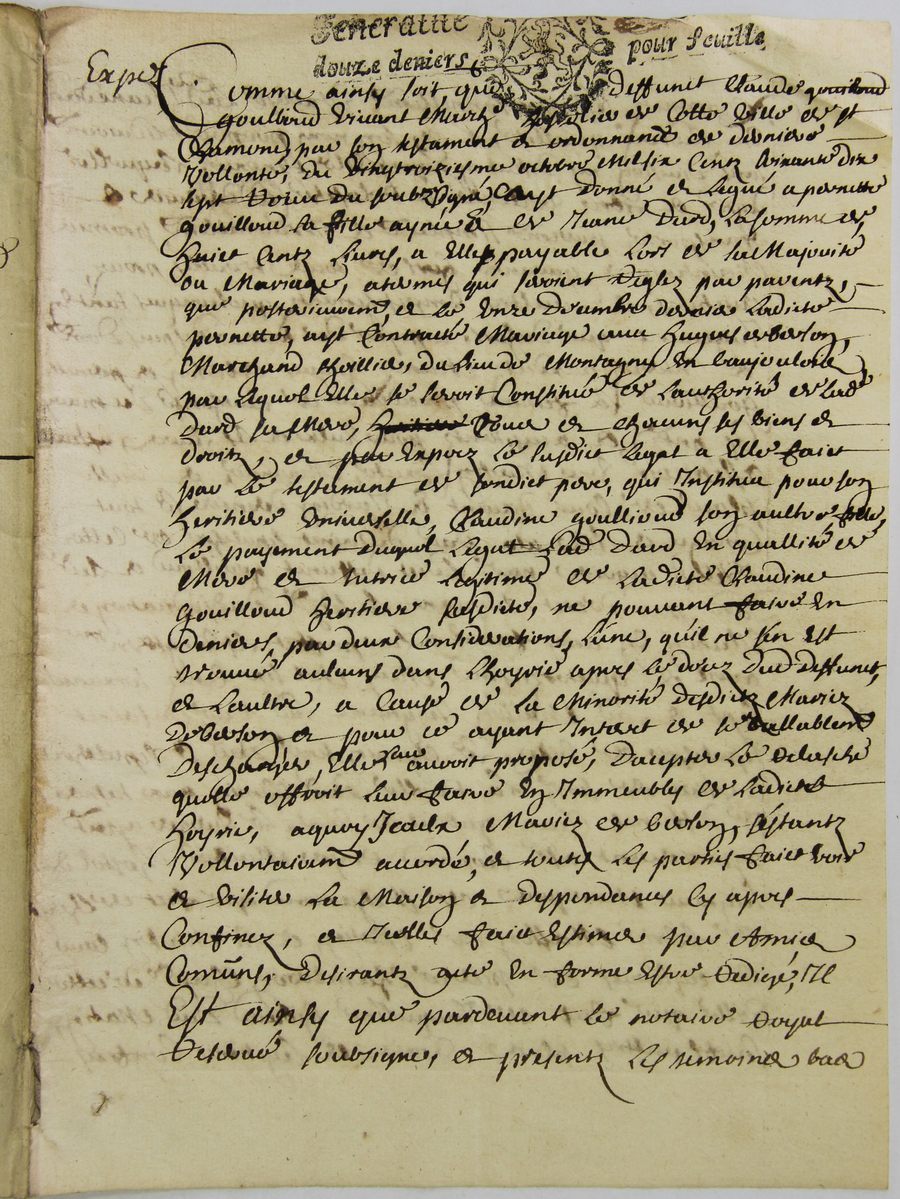 Generalité
douze deniers pour feuille
Exped
Comme ainsy soit que deffunct Claude gouilloud
goulloud vivant March de Cette ville de St
Chamond, par son testament et ordonnance de derniere
Vollonté, du vingtroiziesme octobre Mil six Centz soixante dix
sept Receu du soubzsigné, ayt donné et legué a pernette
gouilloud sa fille aynée & de Jeane Dard, la somme de
huict Centz livres, a Elle payable lors de sa Majorité
ou Mariage, a termes qui seroient Reglez par parentz,
que posterieurem̃t, et le unze decembre dernier ladicte
pernette, ayt Contracté Mariage avec hugues deberson,
Marchand thoillier, du lieu de Montagny En baujoulois
par lequel Elle se seroit Constitué de l'authorité de lad
Dard sa Mere, tous et chacuns ses biens et
droitz, et par Exprez le susdict legat a Elle faict
par le testament de sondict pere, qui Institue pour son
heritiere universelle, Claudine goullioud son aultre fille,
le payement duquel legat lad Dard En quallité de
Mere et tutrice legitime de ladicte Claudine
gouilloud heritiere susdicte, ne pouvant faire En
deniers, par deux Considerations, l'une, qu'il ne s'en est
trouvé aulcuns dans l'hoyrie apres le decez dud deffunct,
et l'aultre, a Cause de la Minorité desdictz Mariez
deberson et pour ce ayant Interet de se vallablem̃t
descharger, Elle leur auroit proposé, d'accepter le Relasche
quelle offroit leur faire En Immeubles de ladicte
hoyrie, a quoy Iceulx Mariez de berson, s'estantz
Vollontairem̃t accordé, et toutes les parties faict voir
et visiter la Maison et despendances Cy apres
Confinez, et Icelles faict Estimer par Amis
Comuns, desirantz acte En forme Estre Redigé, Il
Est ainsy que pardevant le notaire Royal
Reservé soubsigné, et presentz les temoins bas